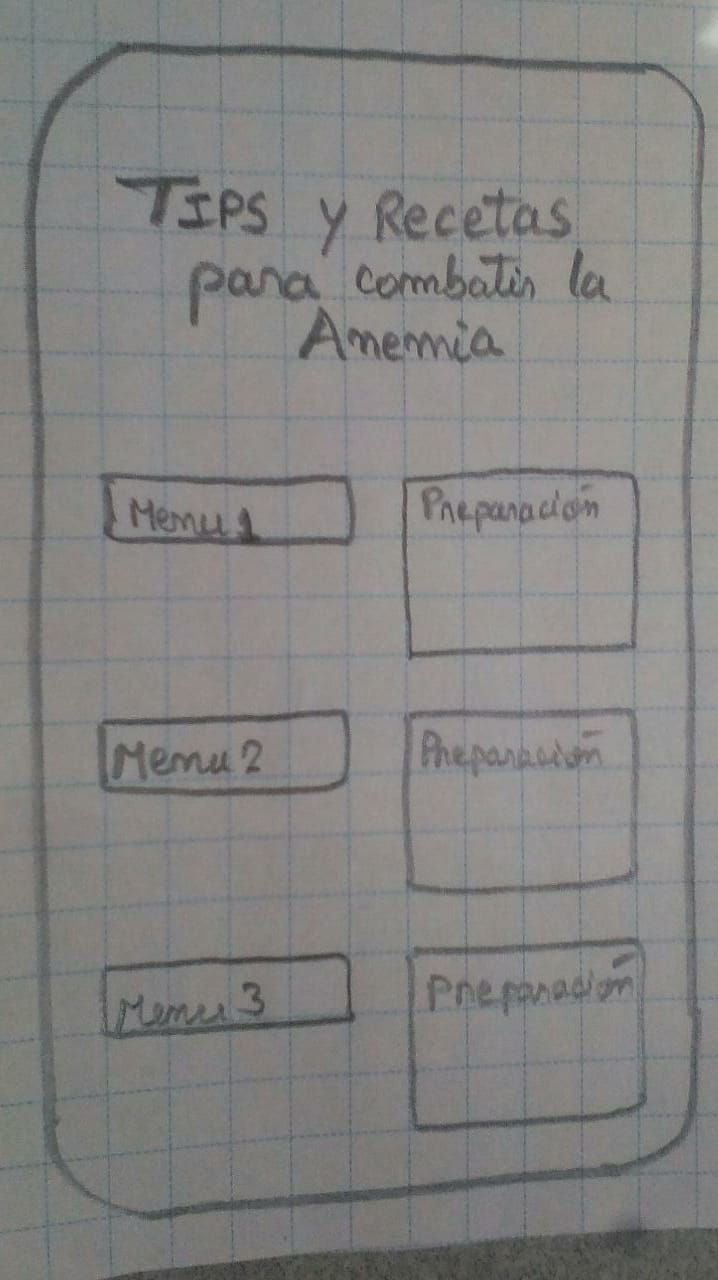 TIPS y Recetas
para combatir la
Anemia
Menu 1
Preparación
Menu 2
Preparación
Menu 3
Preparación